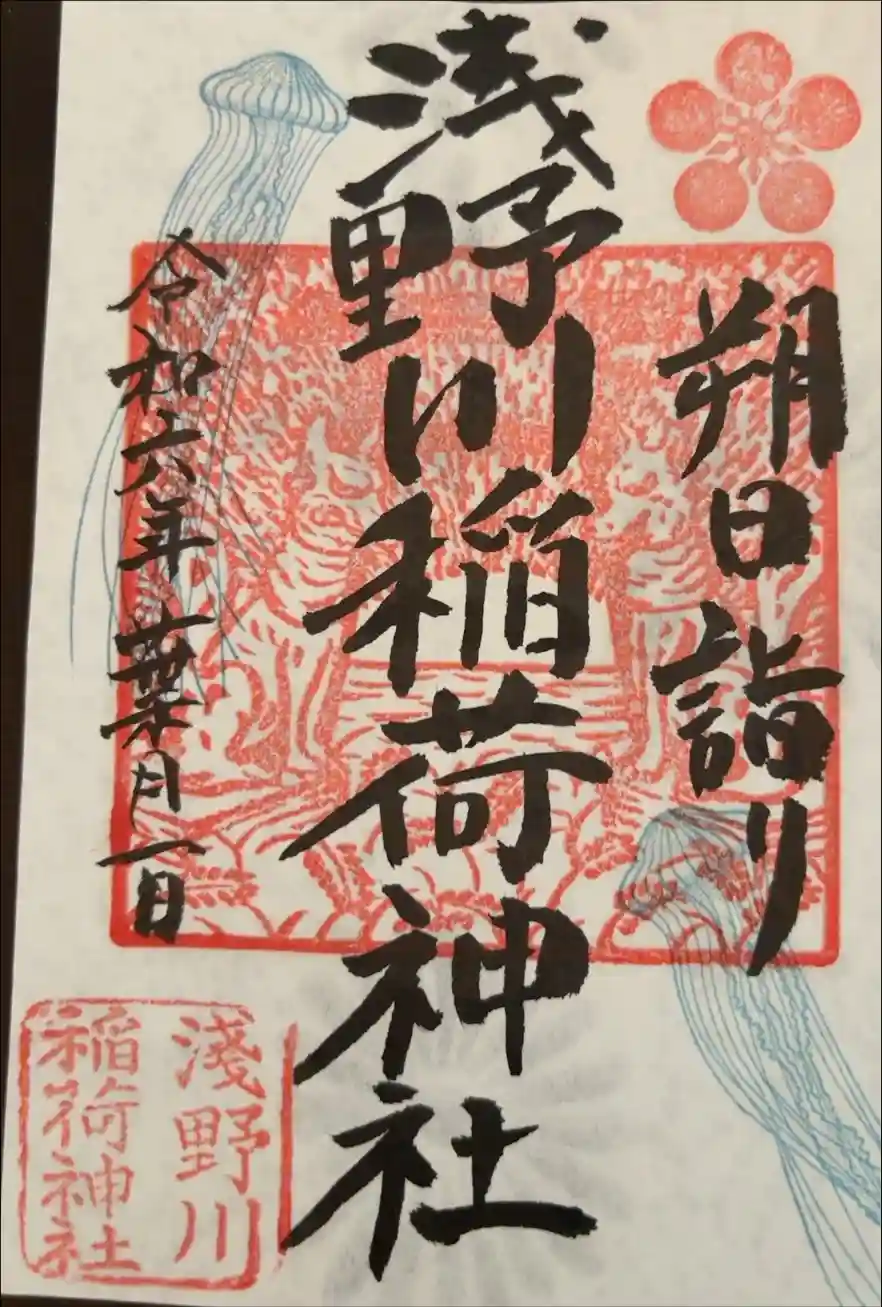 朔日詣り
浅野川稲荷神社
令和六年葉月一日
淺野川
稲荷神社